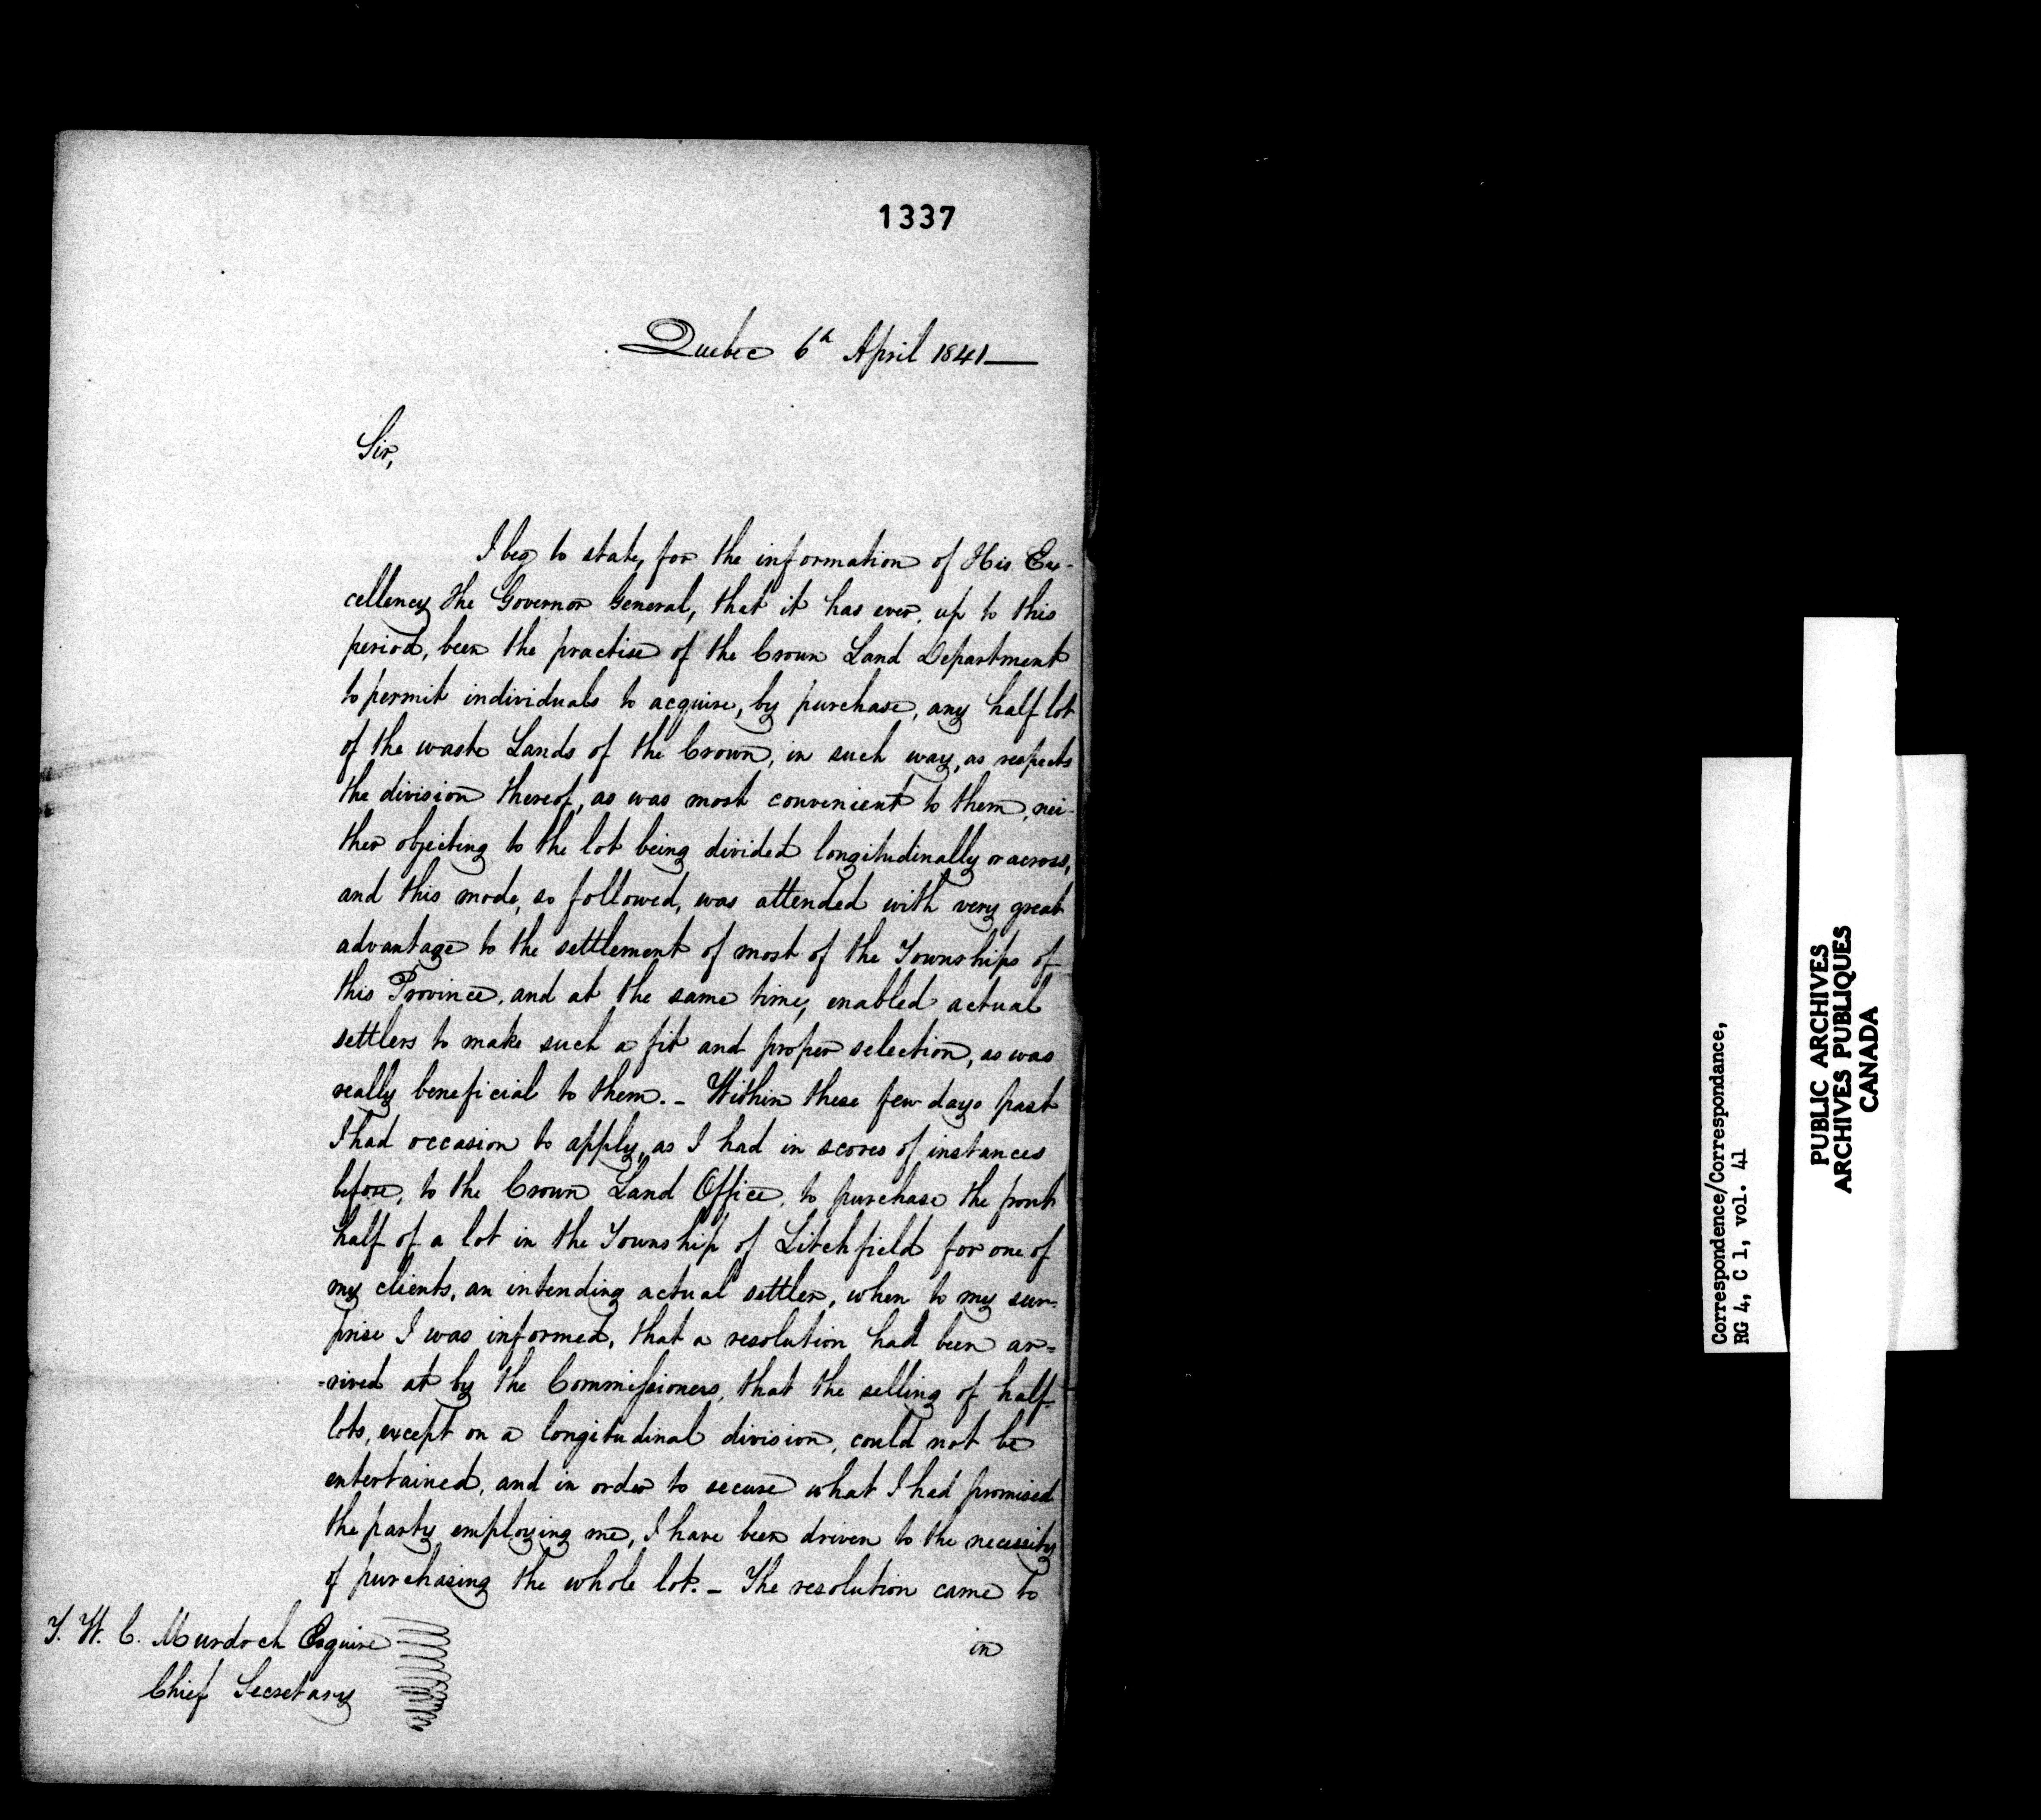 1337
Quebec 6th April 1841
Sir,
I beg to state, for the information of His Ex-
cellency the Governor General, that it has ever, up to this
period, been the practise of the Crown Land Department
to permit individuals to acquire, by purchase, any half lot
of the waste Lands of the Crown, in such way, as respects
the division thereof, as was most convenient to them, nei-
ther objecting to the lot being divided longitudinally or across,
and this mode, so followed, was attended with very great
advantage to the settlement of most of the Townships of
this Province, and at the same time, enabled actual
settlers to make such a fit and proper selection, as was
really beneficial to them. - Within these few days past
I had occasion to apply, as I had in scores of instances
before, to the Crown Land Office, to purchase the front
half of a lot in the Township of Litchfield for one of
my clients, an intending actual settler, when to my sur-
prise I was informed, that a resolution had been ar=
=rived at by the Commissioners, that the selling of half
lots, except on a longitudinal division, could not be
entertained, and in order to secure what I had promised
the party employing me, I have been driven to the necessity
of purchasing the whole lot. - The resolution came to
in
T. W. C. Murdoch Esquire
Chief Secretary
Correspondence/Correspondance,
RG 4, C 1, vol. 41
PUBLIC ARCHIVES
ARCHIVES PUBLIQUES
CANADA